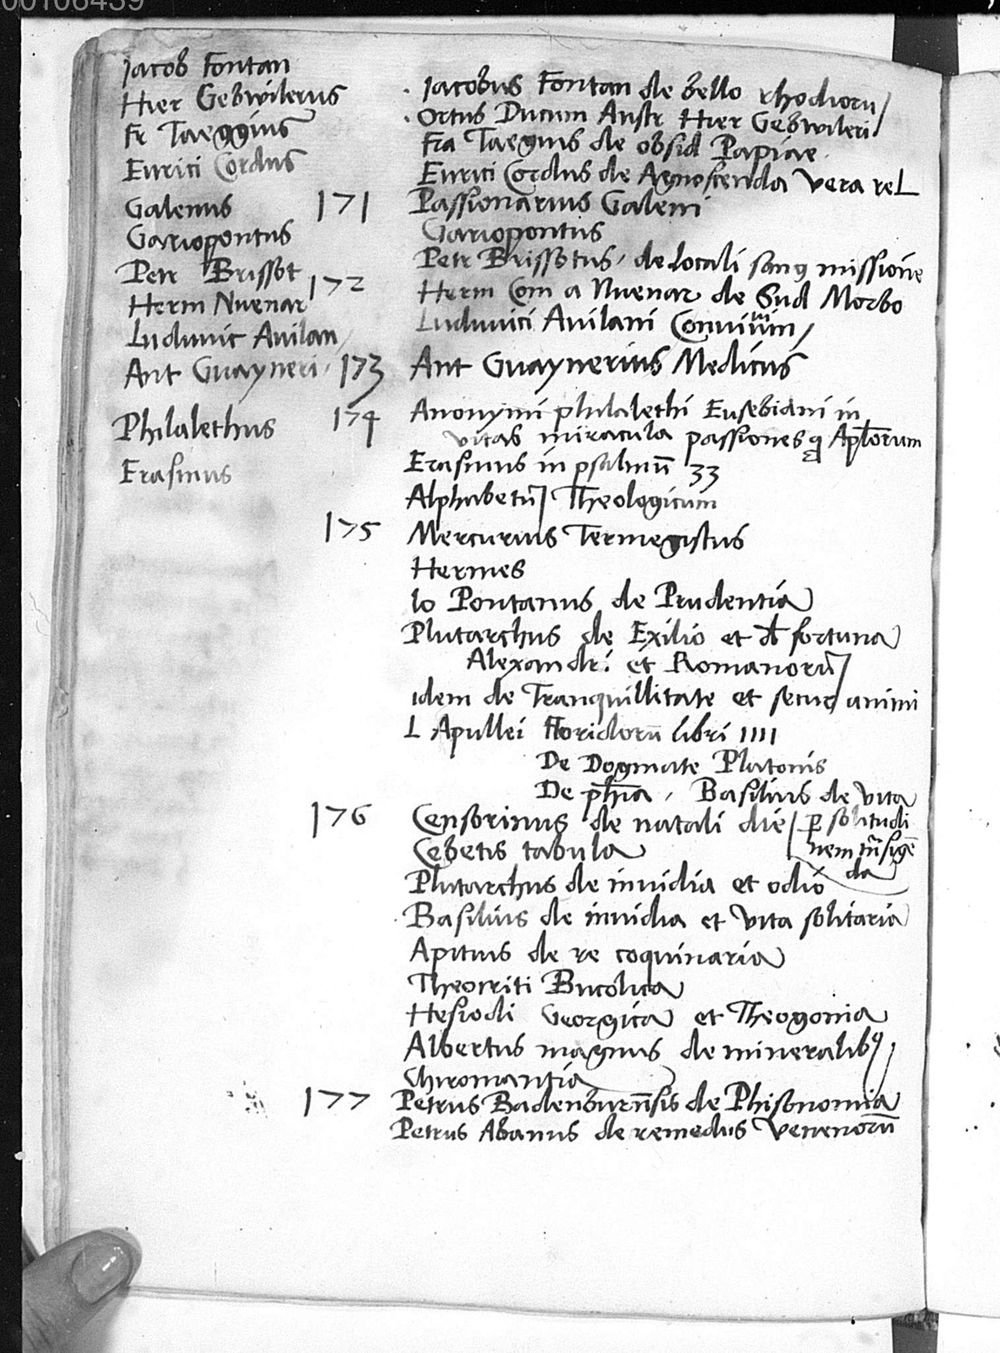 00106439
Jacob Fontan
Hier Gebwilerus
Fr Taeggius
Eurici Cordus
Galenus
Gariopontus
Petr Brissot
Herm Nuenar
Luduuic Auilan
Ant Guayneri
Philalethus
Erasmus
Jacobus Fontan de bello rhodioru
Ortus Ducum Austr Hier Gebwileri
Fra Taegius de obsid Papiae
Eurici Cordus de Agnoscenda vera rel
171 Passionarius Galeni
Gariopontus
Petr Brissotus de locali sang missione
172 Herm Com a Nuenar de Sud Morbo
Luduuici Auilani Conuiuin
173 Ant Guaynerius Medicus
174 Anonymi philalethi Eusebiani in
vitas miracula passiones q Aplorum
Erasmus in psalmū 33
Alphabetū Theologicum
175 Mercurius Termegistus
Hermes
Io Pontanus de Prudentia
Plutarchus de Exilio et d fortuna
Alexandri et Romanorū
idem de Tranquillitate et secur animi
L Apullei Floridorū libri IIII
De Dogmate Platonis
De phia, Basilius de vita
p solitudi
nem
da
176 Censorinus de natali die
Cebetis tabula
Plutarchus de inuidia et odio
Basilius de inuidia et vita solitaria
Apitius de re coquinaria
Theocriti Bucolica
Hesiodi Georgica et Theogonia
Albertus magnus de mineralibq
Chiromantia
177 Petrus Badenburnsis de Phisonomia
Petrus Abanus de remediis venenorū